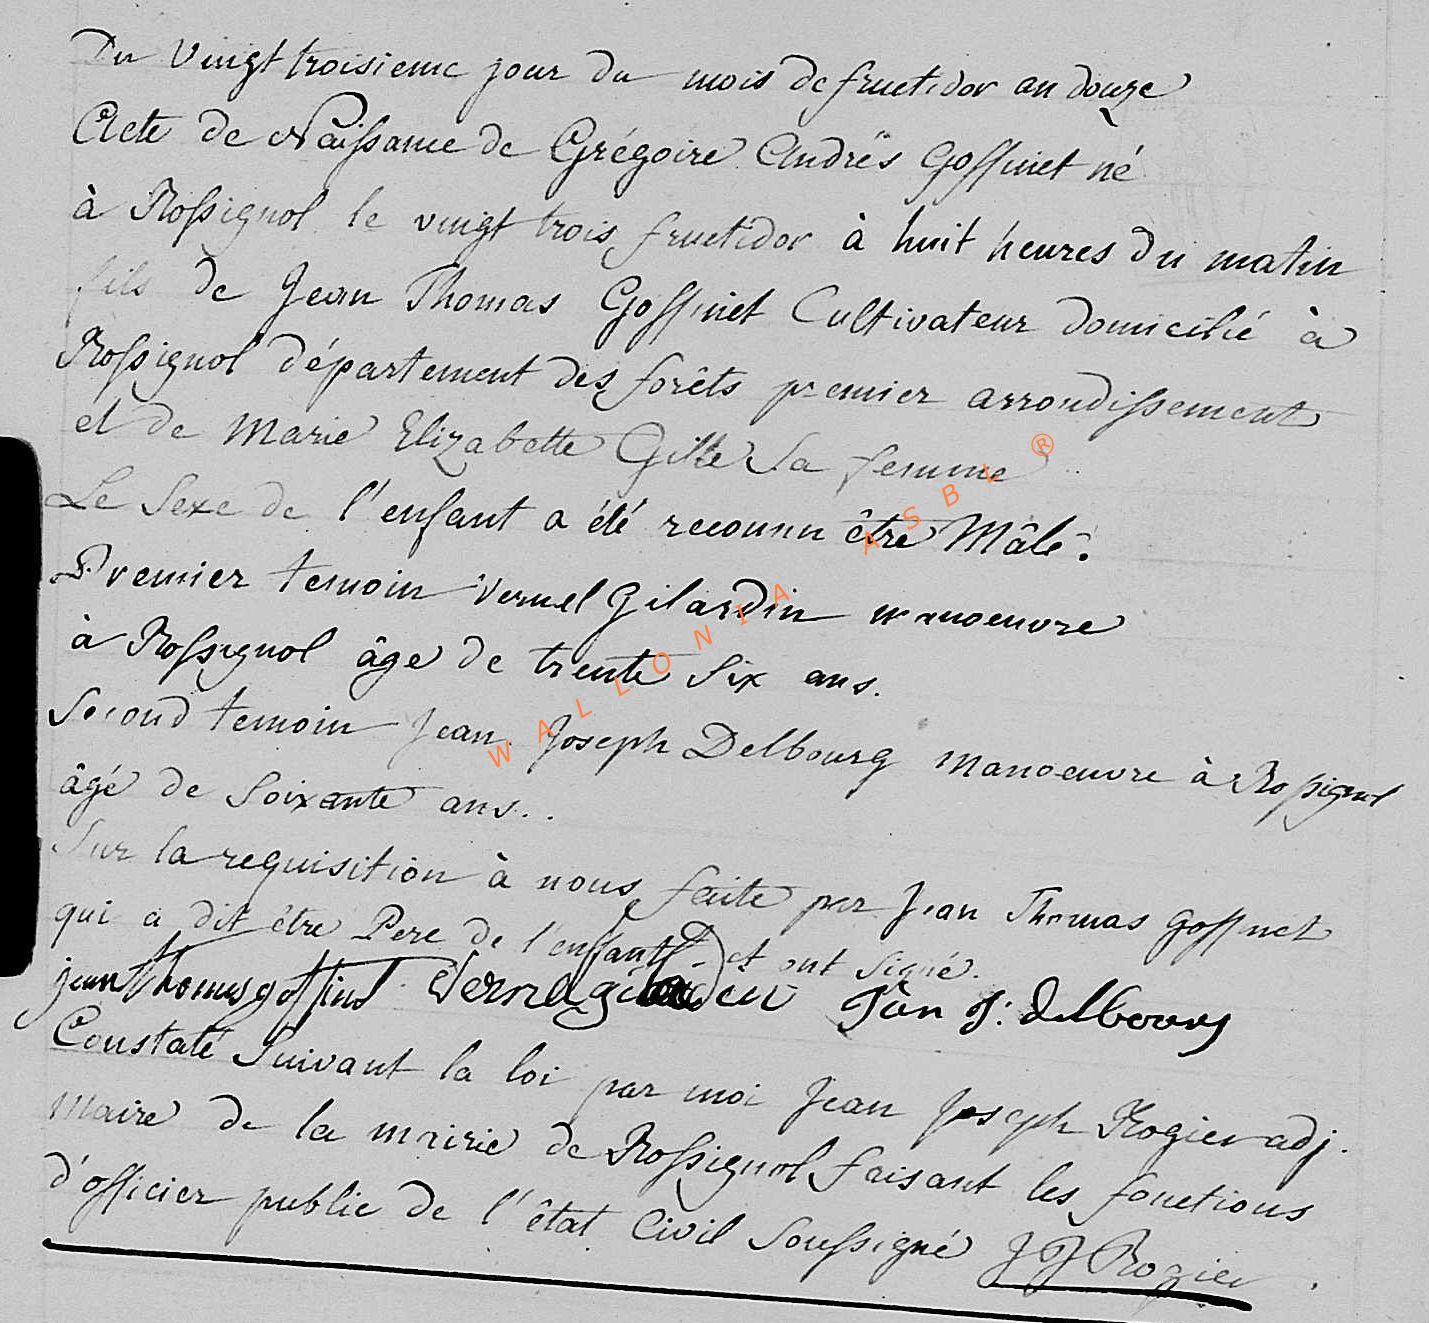 Du Vingt troisieme jour du mois de fructidor an douze
Acte de Naissance de Grégoire Andrés Goffinet né
à Rossignol le vingt trois fructidor à huit heures du matin
fils de Jean Thomas Goffinet Cultivateur domicilié à
Rossignol département des forêts premier arrondissement
et de Marie Elizabette Gille Sa femme
Le Sexe de l'enfant a été reconnu être Mâle.
Premier temoin Vernel Gilardin manoeuvre
à Rossignol âge de trente Six ans.
Second temoin Jean Joseph Delbourg manoeuvre à Rossignol
âgé de Soixante ans..
Sur la requisition à nous faite par Jean Thomas Goffinet
qui a dit être Pere de l'enfant et ont Signé.
jean thomas goffinet J: delbourg
Constaté Suivant la loi par moi Jean Joseph Rogier adj.
Maire de la mairie de Rossignol faisant les fonctions
d'officier public de l'êtat Civil Soussigné J J Rogier
WALLONIA ASBL ®